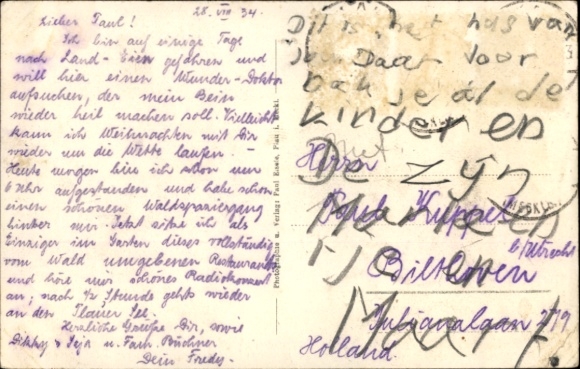 28. VIII 34.
Lieber Paul!
Ich bin auf einige Tage
nach Land- gefahren und
will hier einen Wunder-Doktor
aufsuchen, der mein Bein
wieder heil machen soll. Vielleicht
kann ich Weihnachten mit Dir
wieder um die Wette laufen.
Heute morgen bin ich schon um
6 Uhr aufgestanden und habe schon
einen schönen Waldspaziergang
hinter mir. Jetzt sitze ich als
Einziger im Garten dieses vollständig
vom Wald umgebenen Restaurants
und höre mir schönes Radiokonzert
an; nach ½ Stunde geht's wieder
an den Plauer See.
Herzliche Grüsse Dir, sowie
u. Fam. Büchner
Dein
Photographie u. Verlag: Paul Plau i. Meckl.
Dit is het hus van
Daar voor
bak je al de
kinderen
De zyn
Herrn
Paul Kupper
b/Utrecht
Bilthoven
Julianalaan 279
Holland.